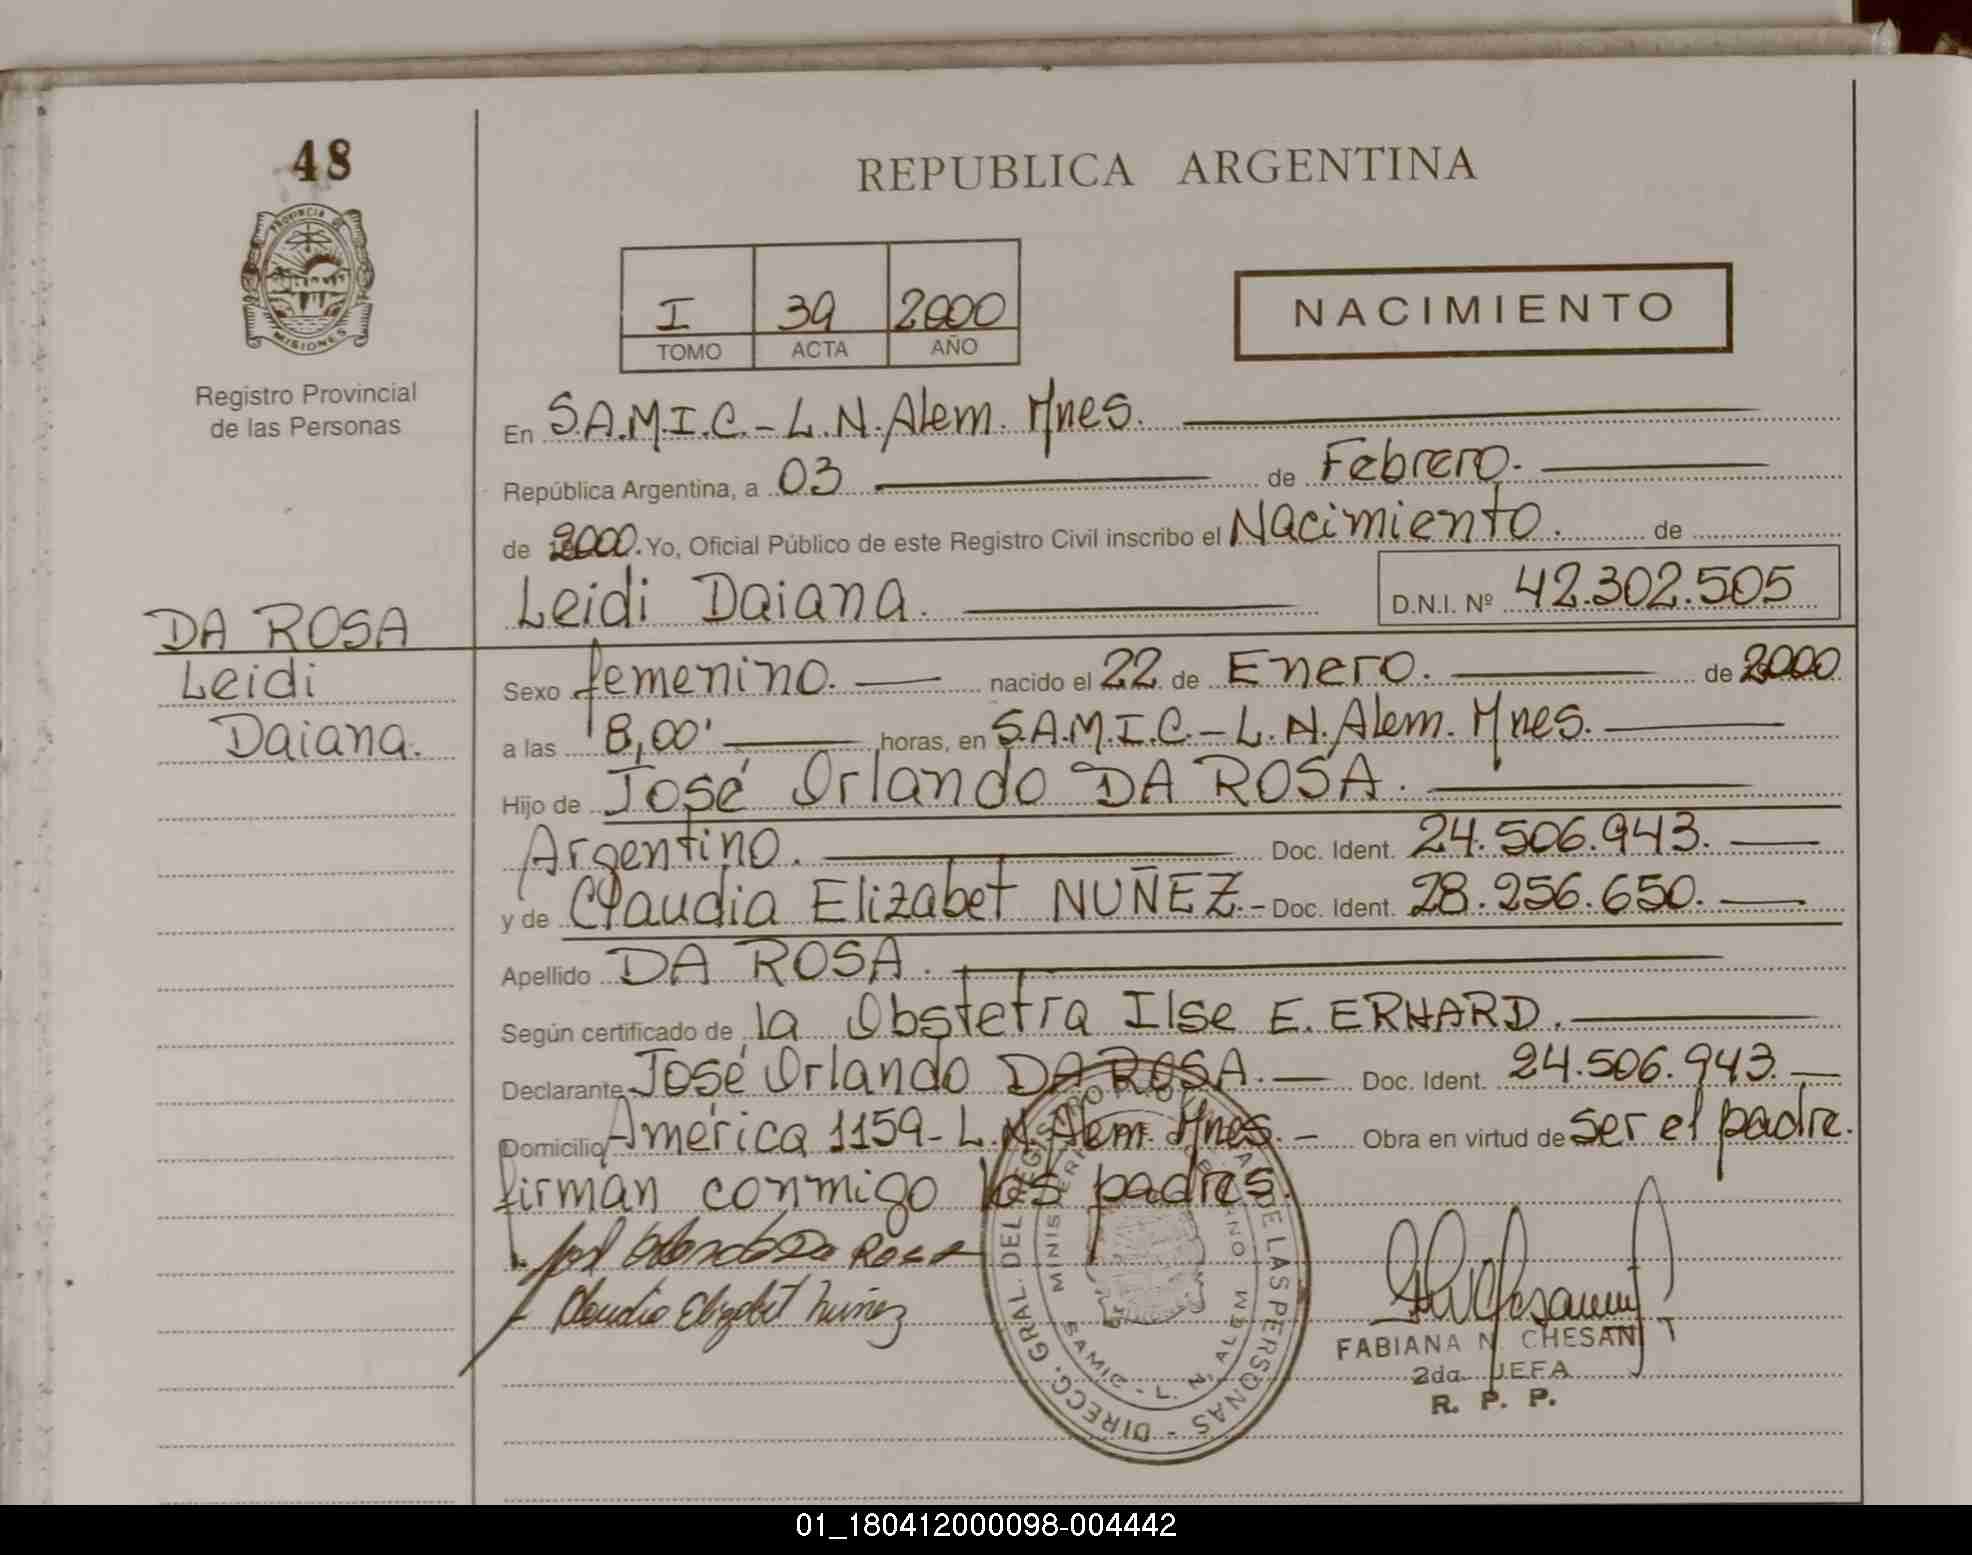 48
PROVINCIA DE
MISIONES
Registro Provincial
de las Personas
DA ROSA
Leidi
Daiana.
REPUBLICA ARGENTINA
I 39 2000
TOMO ACTA AÑO
NACIMIENTO
En S.A.M.I.C.- L.N.Alem. Mnes.
República Argentina, a 03 de Febrero.
de 2000. Yo, Oficial Público de este Registro Civil inscribo el Nacimiento. de
Leidi Daiana. D.N.I. Nº 42.302.505
Sexo femenino. nacido el 22 de Enero. de 2000
a las 8,00' horas, en S.A.M.I.C.- L.N.Alem. Mnes.
Hijo de José Orlando DA ROSA.
Argentino. Doc. Ident. 24.506.943.
y de Claudia Elizabet NUÑEZ.- Doc. Ident. 28.256.650.
Apellido DA ROSA.
Según certificado de la Obstetra Ilse E. ERHARD.
Declarante José Orlando DA ROSA. Doc. Ident. 24.506.943.
Domicilio América 1159- L.N.Alem. Mnes. Obra en virtud de ser el padre.
firman conmigo los padres.
José Orlando Da ROSA
Claudia Elizabet Nuñez
DIRECC. GRAL. DEL REGISTRO DE LAS PERSONAS
SAMIC - L. N. ALEM
FABIANA N. CHESANI
2da. JEFA
R. P. P.
01_180412000098-004442